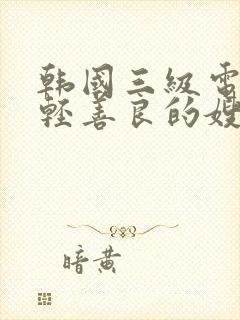 韩國三級電
輕善良的嫂
暗黄